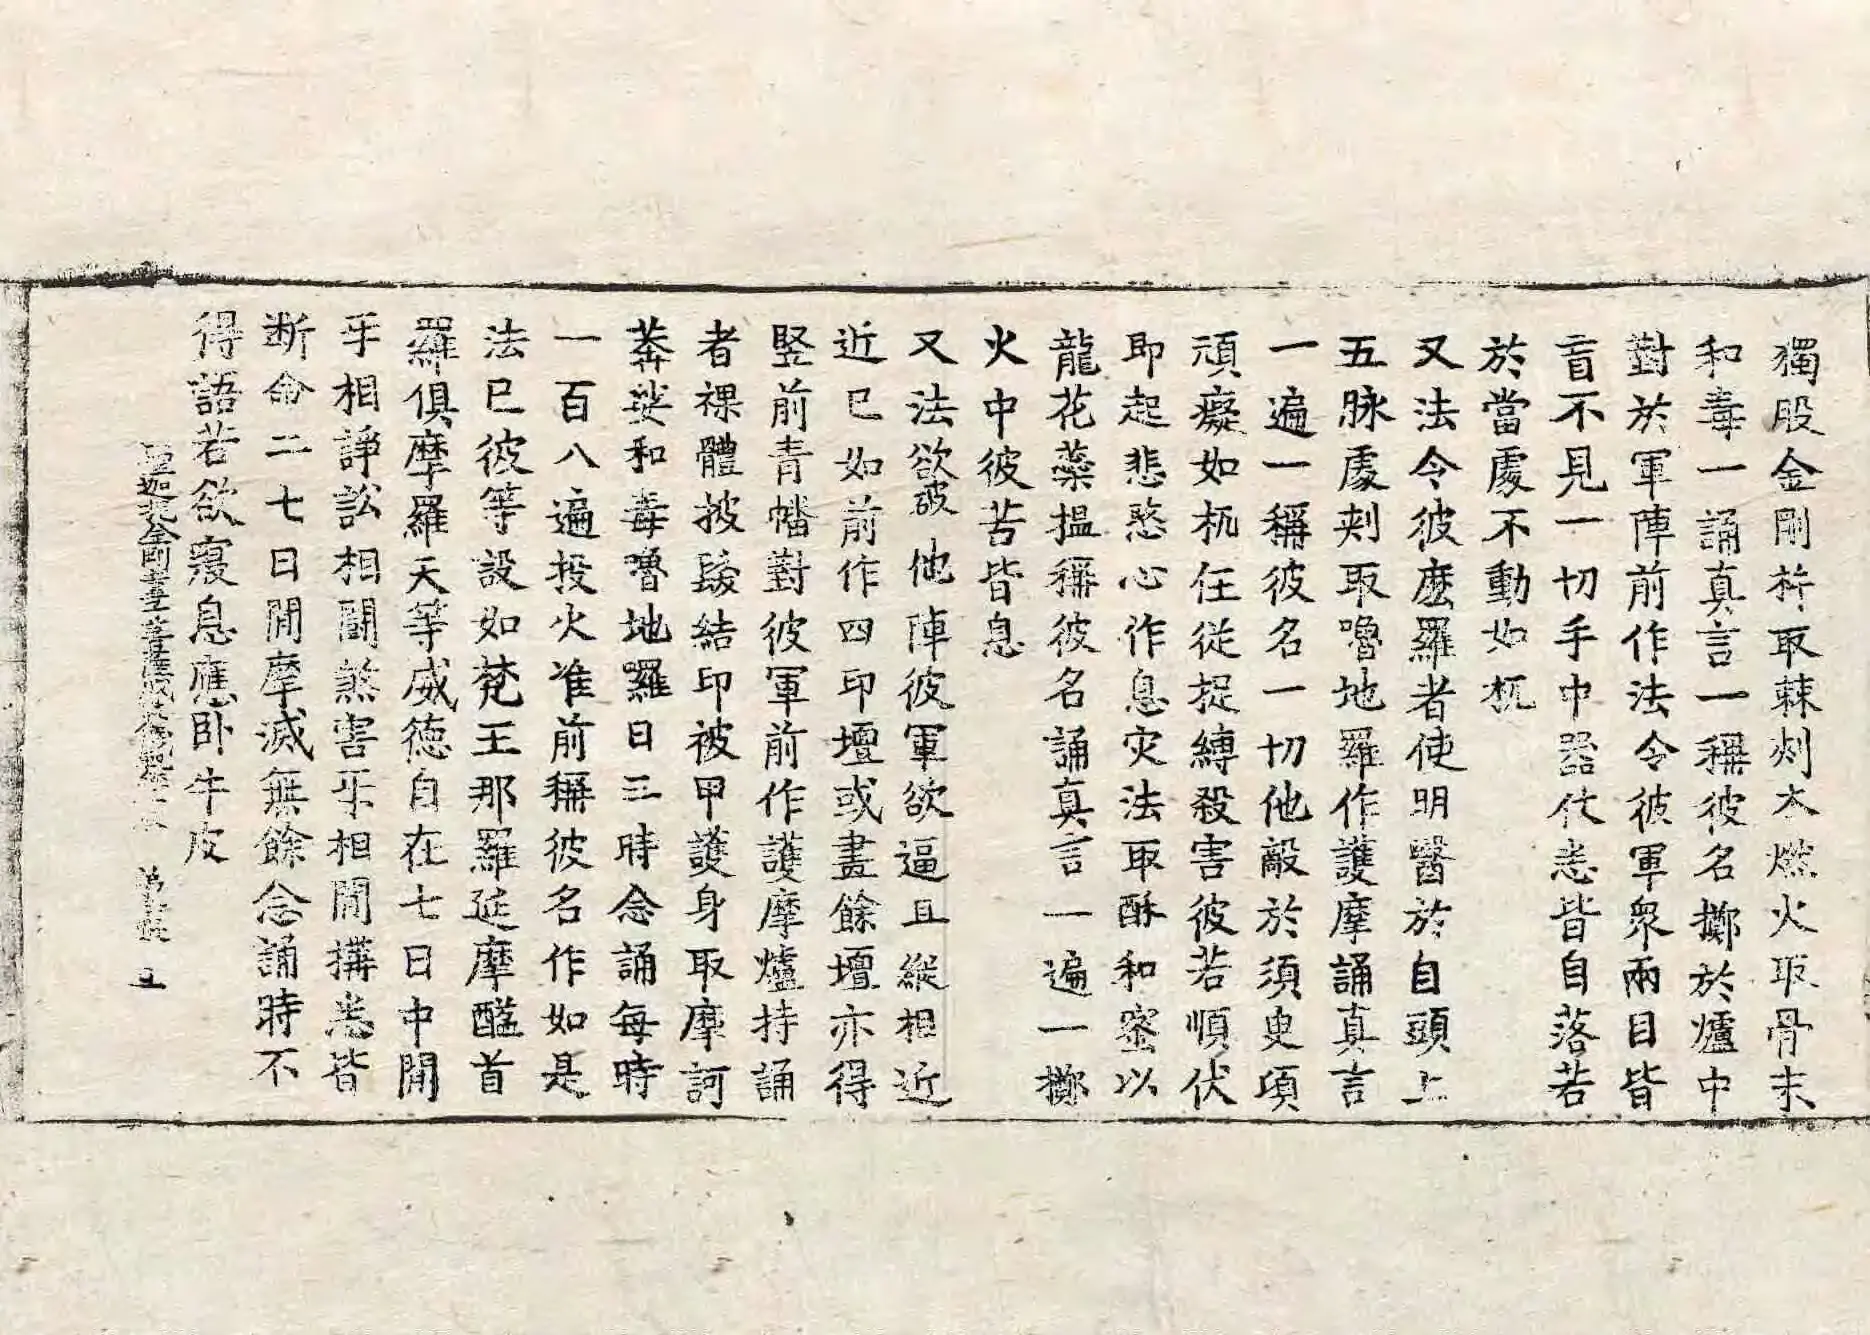 獨股金剛杵取棘刺木燃火取骨末
和毒一誦真言一稱彼名擲於爐中
對於軍陣前作法令彼軍眾兩目皆
盲不見一切手中器仗悉皆自落若
於當處不動如杌
又法令彼麼羅者使明醫於自頭上
五脉處刾取嚕地羅作護摩誦真言
一遍一稱彼名一切他敵於須臾項
頑癡如杌任從捉縛殺害彼若順伏
即起悲愍心作息灾法取酥和蜜以
龍花蘂搵稱彼名誦真言一遍一擲
火中彼苦皆息
又法欲破他陣彼軍欲逼且縱相近
近已如前作四印壇或畫餘壇亦得
竪前青幡對彼軍前作護摩爐持誦
者裸體披髮結印被甲護身取摩訶
莾娑和毒嚕地羅日三時念誦每時
一百八遍投火准前稱彼名作如是
法已彼等設如梵王那羅延摩醯首
羅俱摩羅天等威德自在七日中間
乎相諍訟相鬪煞害乎相間搆悉皆
断命二七日間摩滅無餘念誦時不
得語若欲寢息應卧牛皮
聖迦抳金剛童菩薩成